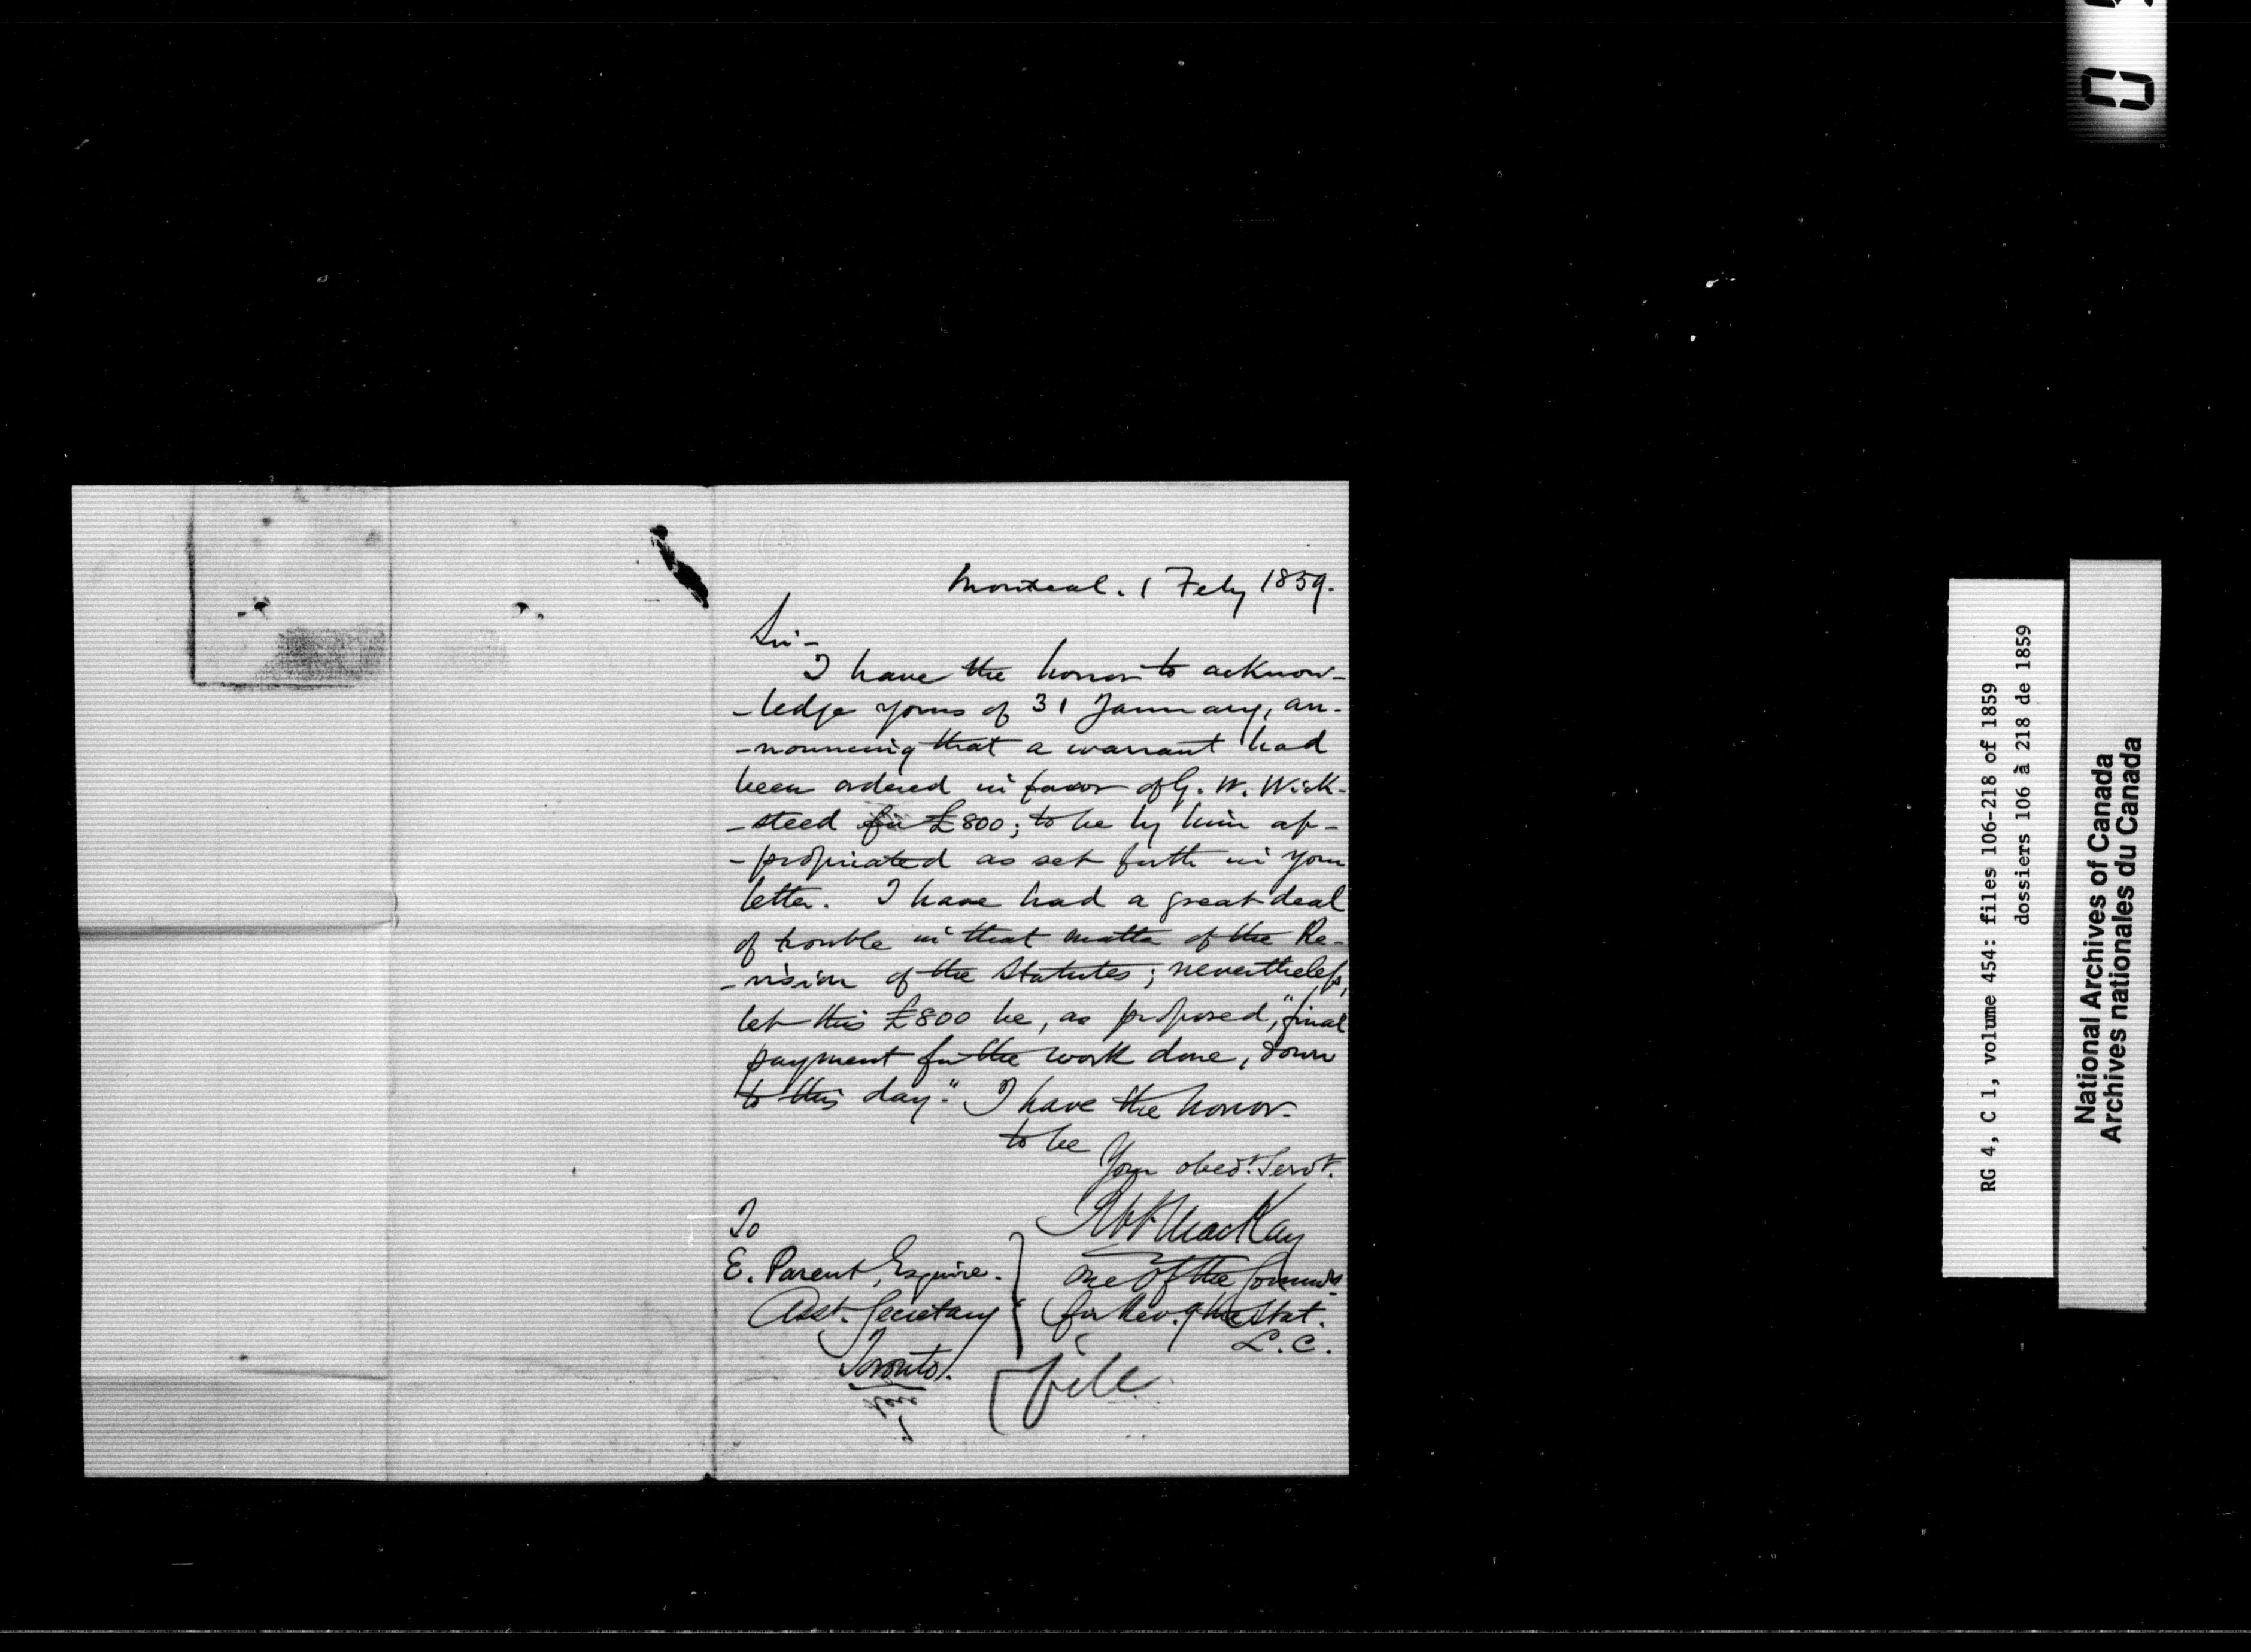 Montreal. 1 Feby 1859.
Sir-
I have the honor to acknow-
-ledge yours of 31 January, an-
-nouncing that a warrant had
been ordered in favor of G. W. Wick-
-steed for £800; to be by him ap-
-propriated as set forth in your
letter. I have had a great deal
of trouble in that matter of the Re-
-vision of the Statutes; nevertheless,
let this £800 be, as proposed, "final
payment for the work done, down
to this day." I have the honor
to be
Your obedt. Servt.
Robt MacKay
One of the Commrs.
for Rev. of the Stat.
L. C.
To
E. Parent, Esquire.
Asst. Secretary
Toronto.
file
RG 4, C 1, volume 454: files 106-218 of 1859
dossiers 106 à 218 de 1859
National Archives of Canada
Archives nationales du Canada